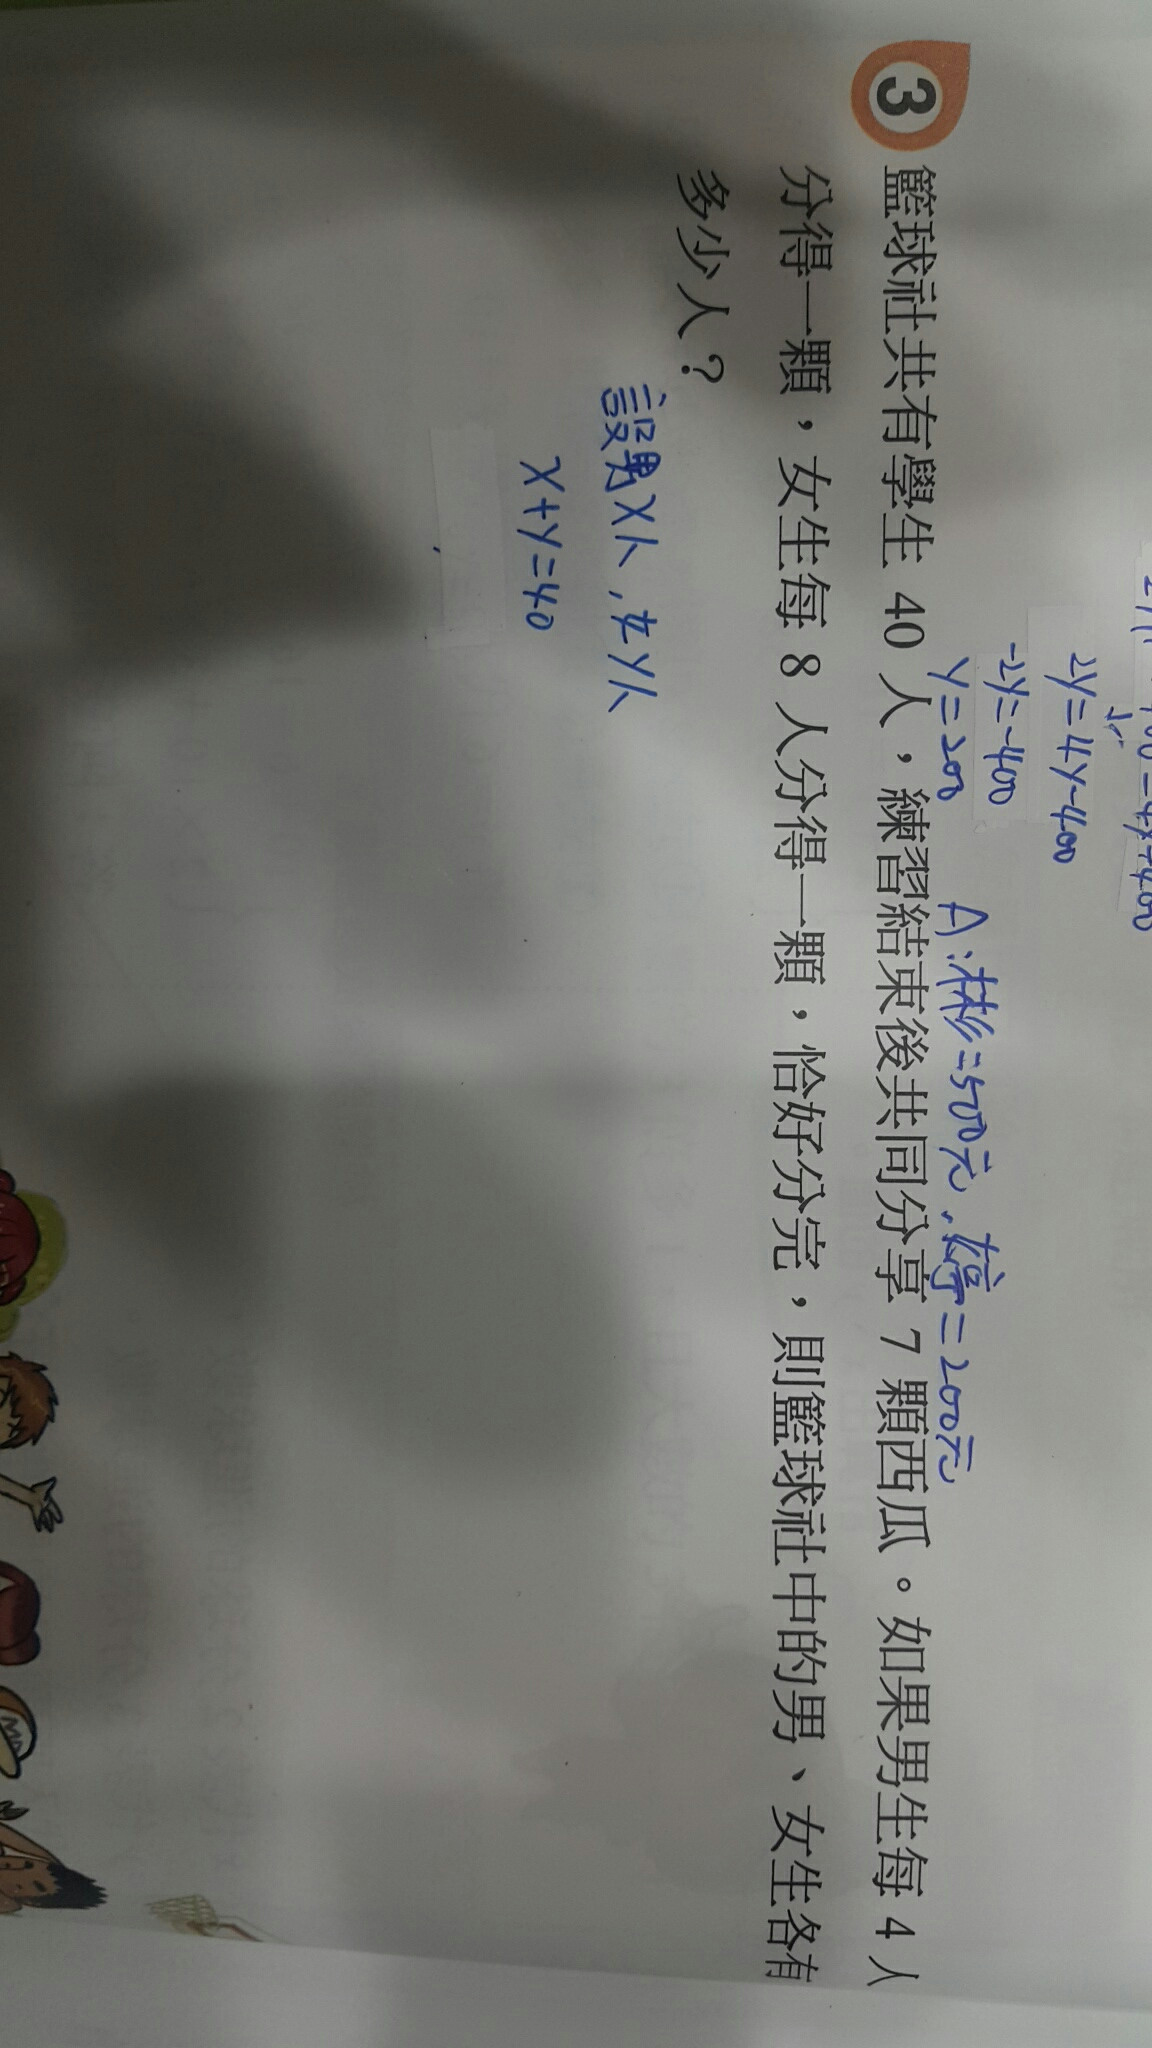 2y=4y-400
-2y=-400
y=200
A:彬=500元,婷=200元
3
籃球社共有學生 40 人,練習結束後共同分享 7 顆西瓜。如果男生每 4 人
分得一顆,女生每 8 人分得一顆,恰好分完,則籃球社中的男、女生各有
多少人?
設男x人,女y人
x+y=40